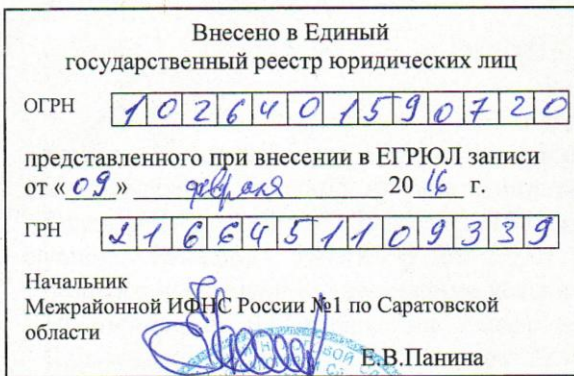 Внесено в Единый
государственный реестр юридических лиц
ОГРН 1026401590720
представленного при внесении в ЕГРЮЛ записи
от «09» февраля 2016 г.
ГРН 2166451109339
Начальник
Межрайонной ИФНС России №1 по Саратовской
области
Е.В.Панина